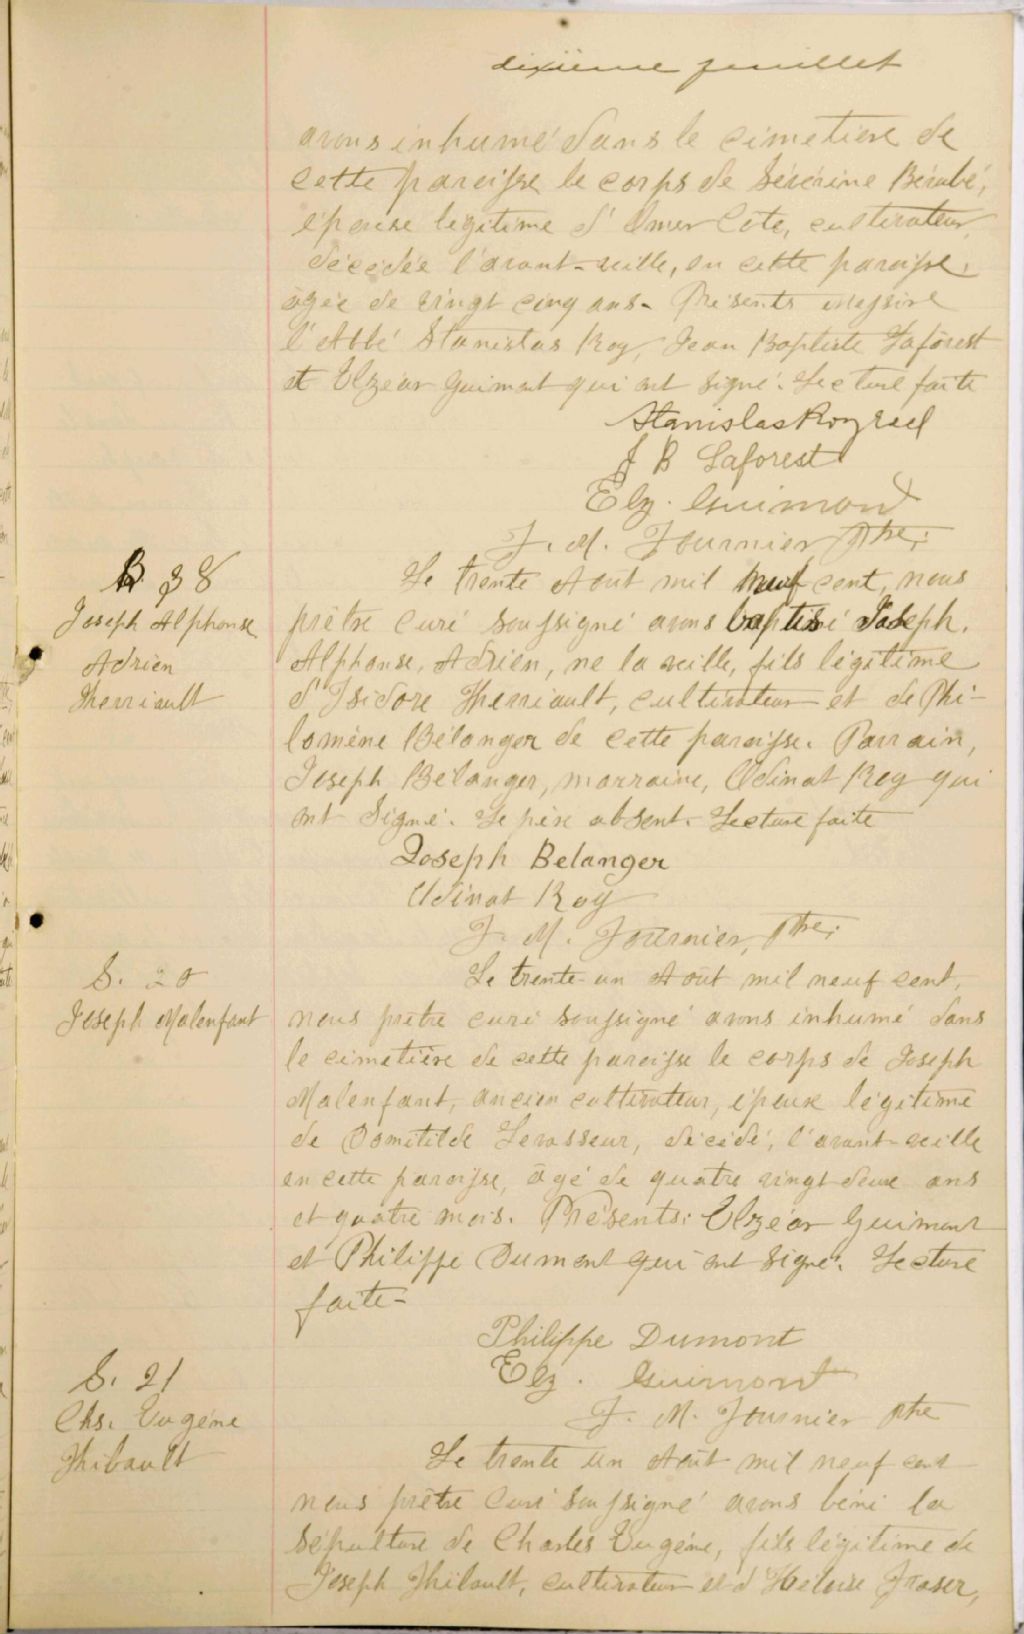 dixiième feuillet
avons inhumé dans le cimetière de
cette paroisse le corps de Séverine Bérubé,
épouse légitime d'Omer Côté, cultivateur,
décédée l'avant-veille, en cette paroisse,
âgée de vingt cinq ans. Présents messire
l'Abbé Stanislas Roy, Jean Baptiste Laforest
et Elzéar Guimont qui ont signé. Lecture faite
Stanislas Roy
J B Laforest
Elz. Guimond
J. M. Fournier Ptre.
B. 38
Joseph Alphonse
Adrien
Therriault
Le trente Août mil neuf cent, nous
prêtre curé soussigné avons baptisé Joseph,
Alphonse, Adrien, né la veille, fils légitime
d'Isidore Therriault, cultivateur et de Phi-
lomène Bélanger de cette paroisse. Parrain,
Joseph Bélanger, marraine, Odinat Roy qui
ont signé. Le père absent. Lecture faite
Joseph Belanger
Odinat Roy
J. M. Fournier, Ptre.
S. 20
Joseph Malenfant
Le trente-un Août mil neuf cent,
nous prêtre curé soussigné avons inhumé dans
le cimetière de cette paroisse le corps de Joseph
Malenfant, ancien cultivateur, époux légitime
de Domitilde Levasseur, décédé, l'avant-veille
en cette paroisse, âgé de quatre vingt deux ans
et quatre mois. Présents: Elzéar Guimont
et Philippe Dumont qui ont signé. Lecture
faite-
Philippe Dumont
Elz. Guimont
J. M. Fournier Ptre
S. 21
Chs. Eugène
Thibault
Le trente un Août mil neuf cent
nous prêtre curé soussigné avons béni la
sépulture de Charles Eugène, fils légitime de
Joseph Thibault, cultivateur et d'Héloise Fraser,